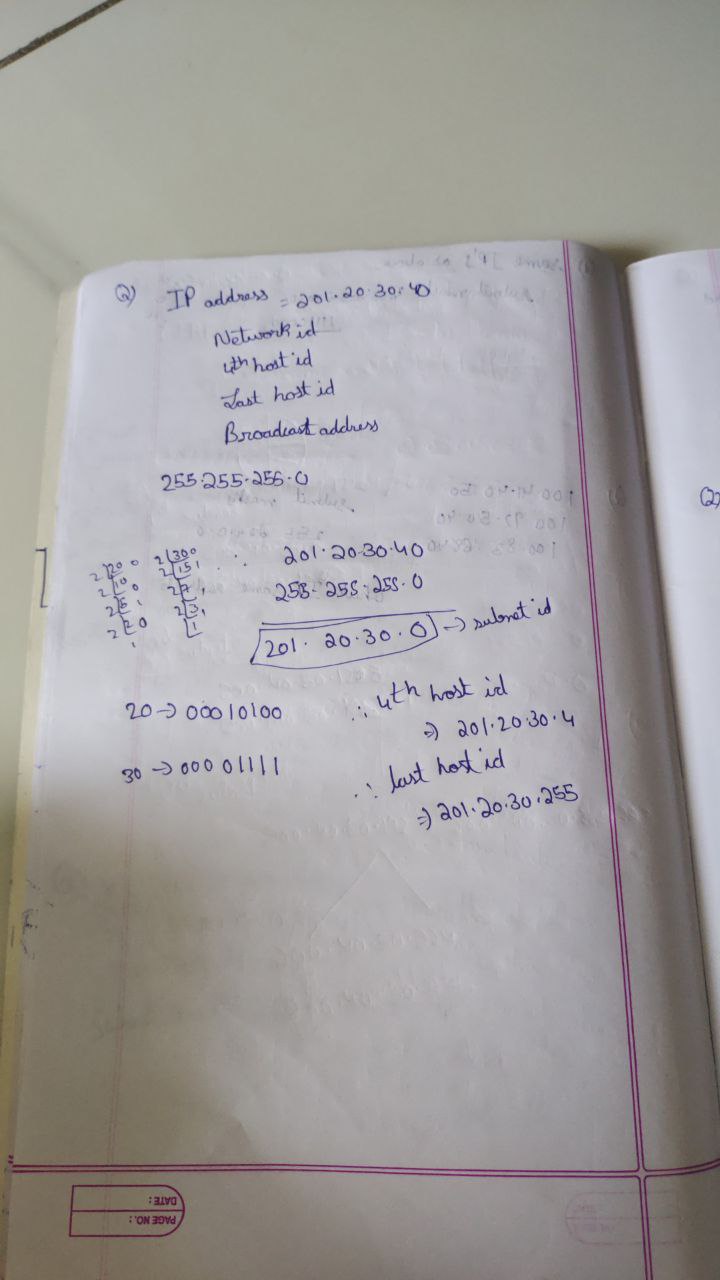 Q) IP address = 201.20.30.40
Network id
4th host id
Last host id
Broadcast address
255.255.255.0
2 20 0
2 10 0
2 5 1
2 2 0
1
2 30 0
2 15 1
2 7 1
2 3 1
1
∴ 201.20.30.40
255.255.255.0
201.20.30.0 → subnet id
20 → 00010100
30 → 00001111
∴ 4th host id
⇒ 201.20.30.4
∴ last host id
⇒ 201.20.30.255
(2)
PAGE NO.:
DATE: